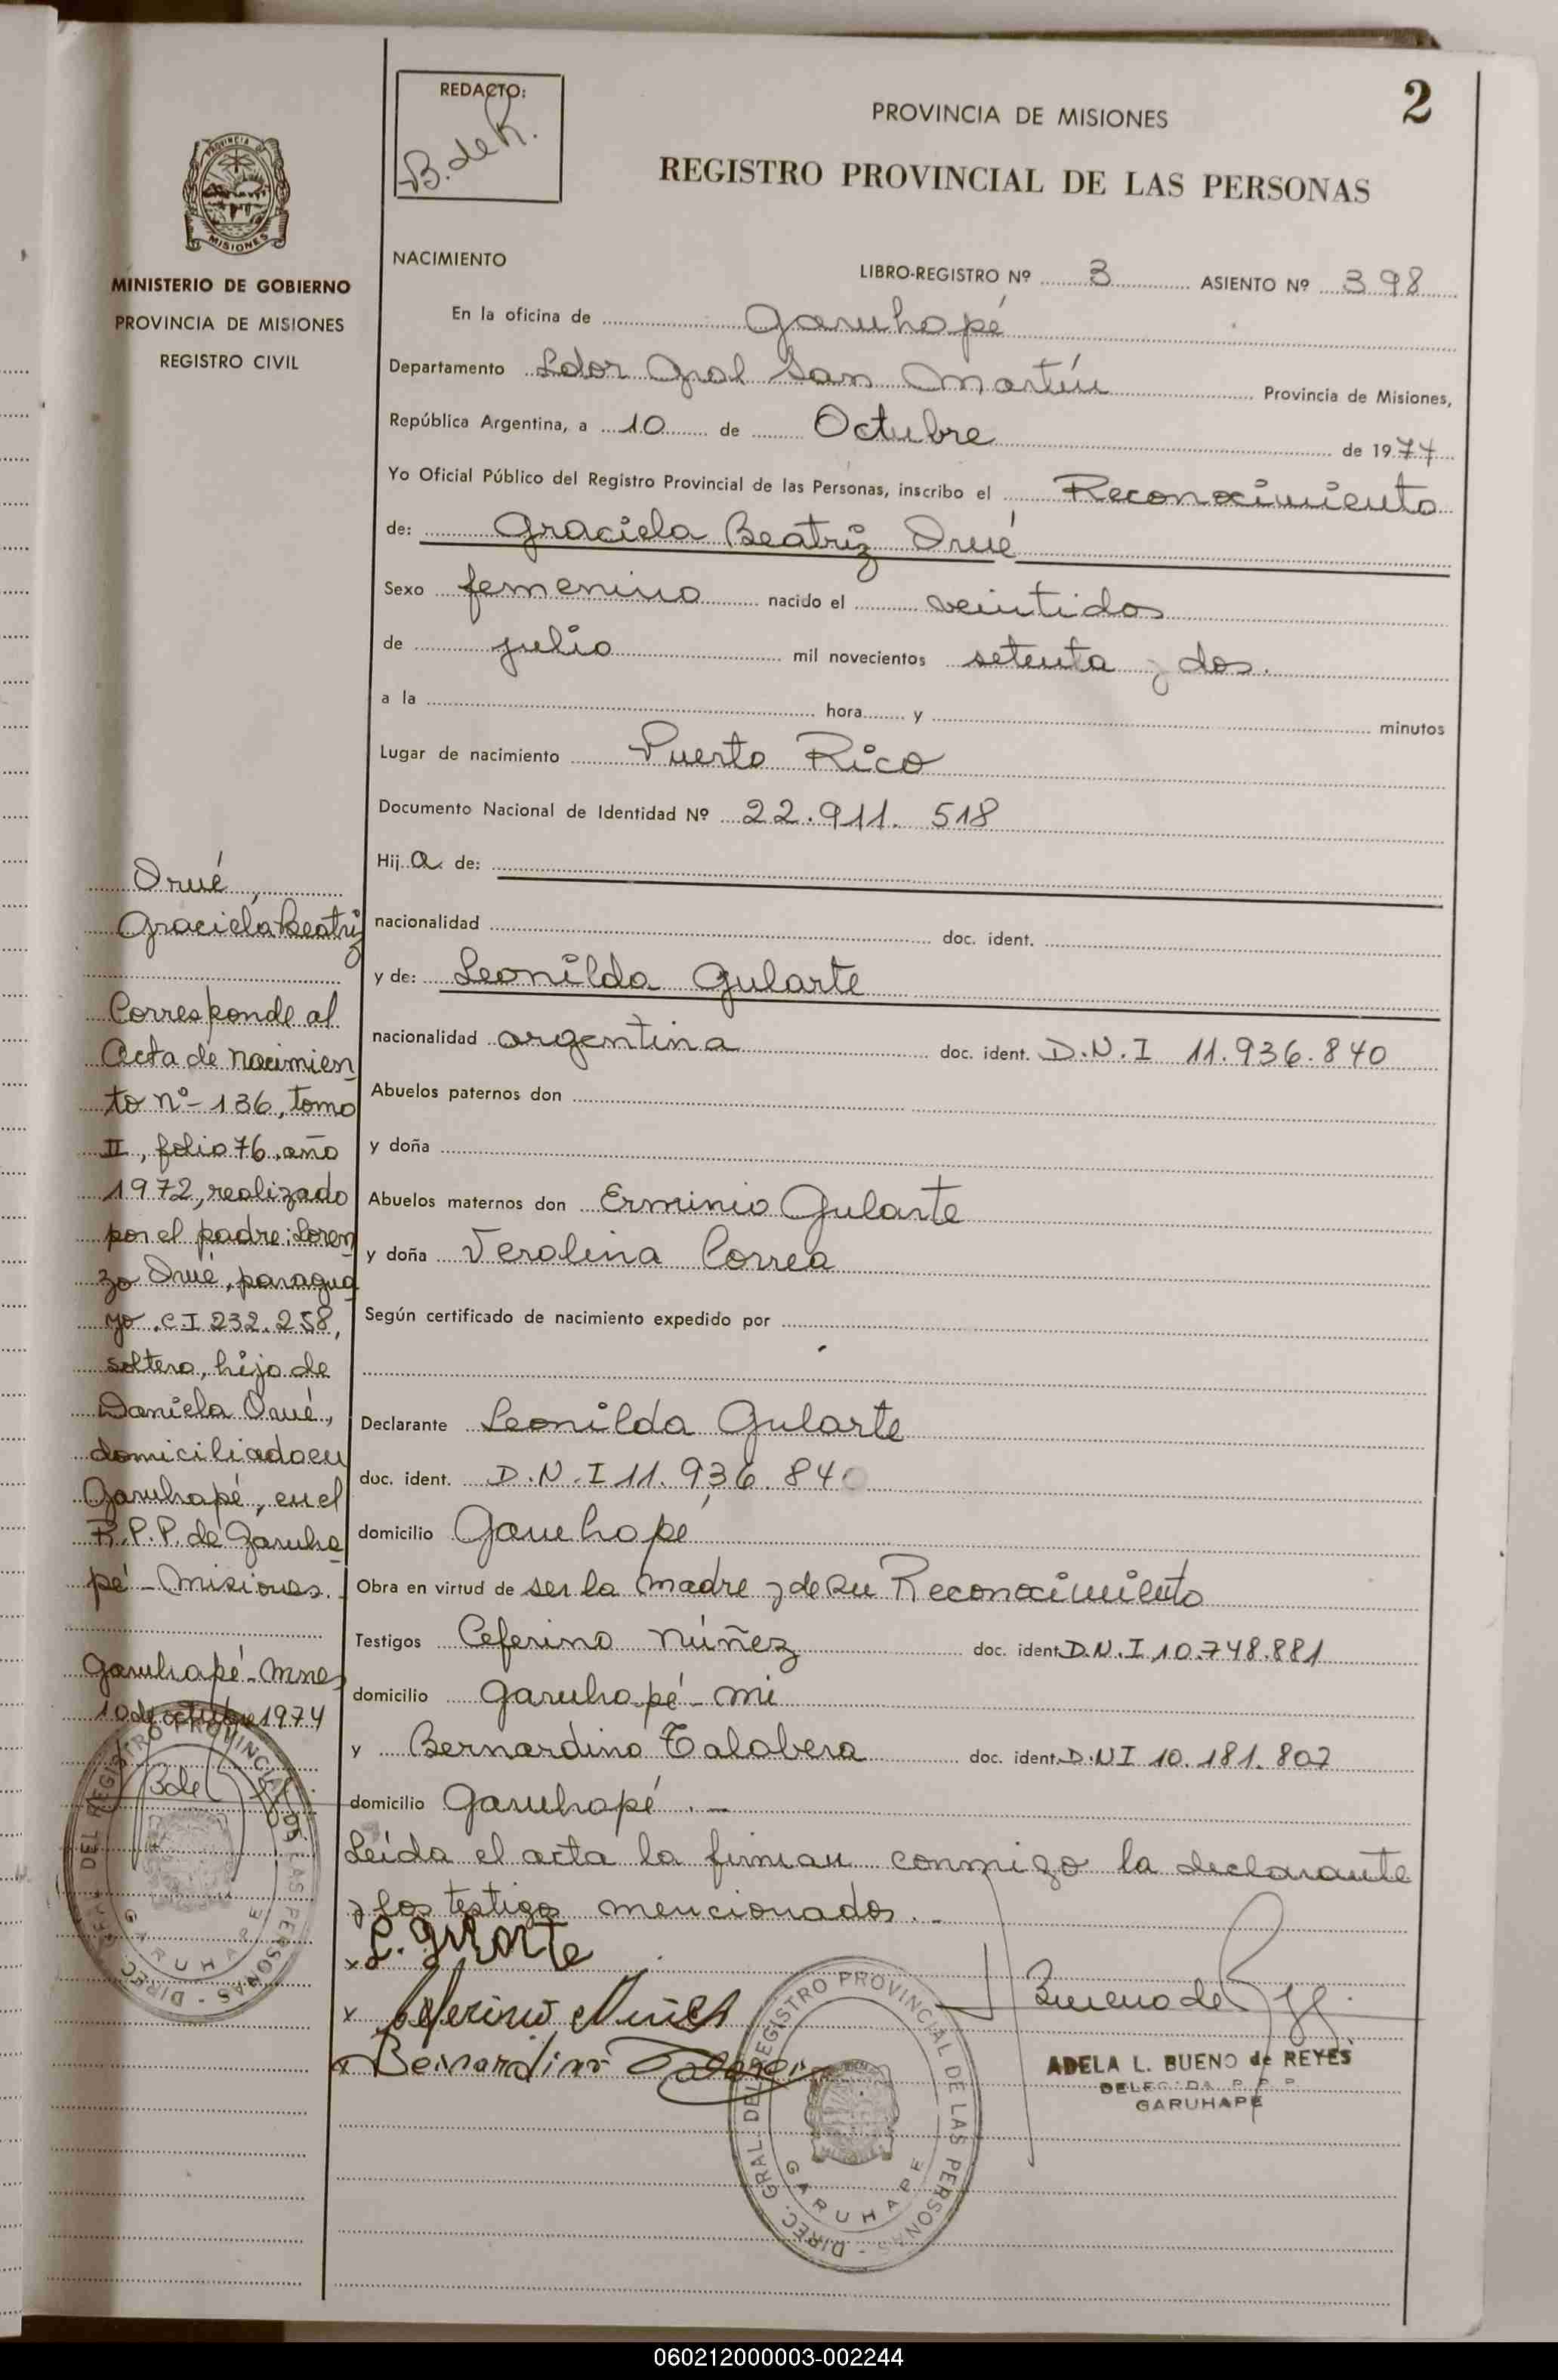 REDACTO:
B. de R.
PROVINCIA DE MISIONES
2
REGISTRO PROVINCIAL DE LAS PERSONAS
MISIONES
MINISTERIO DE GOBIERNO
PROVINCIA DE MISIONES
REGISTRO CIVIL
NACIMIENTO
LIBRO-REGISTRO Nº 3 ASIENTO Nº 398
En la oficina de Garuhapé
Departamento Ldor Gral San Martín Provincia de Misiones,
República Argentina, a 10 de Octubre de 1974
Yo Oficial Público del Registro Provincial de las Personas, inscribo el Reconocimiento
de: Graciela Beatriz Orué
Sexo femenino nacido el veintidos
de julio mil novecientos setenta y dos.
a la hora y minutos
Lugar de nacimiento Puerto Rico
Documento Nacional de Identidad Nº 22.911.518
Hija de:
nacionalidad doc. ident.
y de: Leonilda Gularte
nacionalidad argentina doc. ident. D.N.I 11.936.840
Abuelos paternos don
y doña
Abuelos maternos don Erminio Gularte
y doña Verolina Correa
Según certificado de nacimiento expedido por
Declarante Leonilda Gularte
doc. ident. D.N.I 11.936.840
domicilio Garuhapé
Obra en virtud de ser la madre y de su Reconocimiento
Testigos Ceferino Núñez doc. ident. D.N.I 10.748.881
domicilio Garuhapé - Mi
y Bernardino Talabera doc. ident. D.NI 10.181.807
domicilio Garuhapé . -
Leída el acta la firman conmigo la declarante
y los testigos mencionados. -
x L. gularte
x Ceferino Nuñes
x Bernardino
Bueno de
ADELA L. BUENO de REYES
DELEGADA R. P. P.
GARUHAPE
DIREC. GRAL. DEL REGISTRO PROVINCIAL DE LAS PERSONAS -
GARUHAPE
Orué,
Graciela Beatriz
Corresponde al
Acta de Nacimien
to nº - 136, tomo
II, folio 76, año
1972, realizado
por el padre: Loren
zo Orué, paragua
yo. C.I 232.258,
soltero, hijo de
Daniela Orué,
domiciliado en
Garuhapé, en el
R.P.P. de Garuha
pé - Misiones.
Garuhapé - Mnes
10 de octubre 1974
B de
DIREC. GRAL. DEL REGISTRO PROVINCIAL DE LAS PERSONAS -
GARUHAPE
060212000003-002244